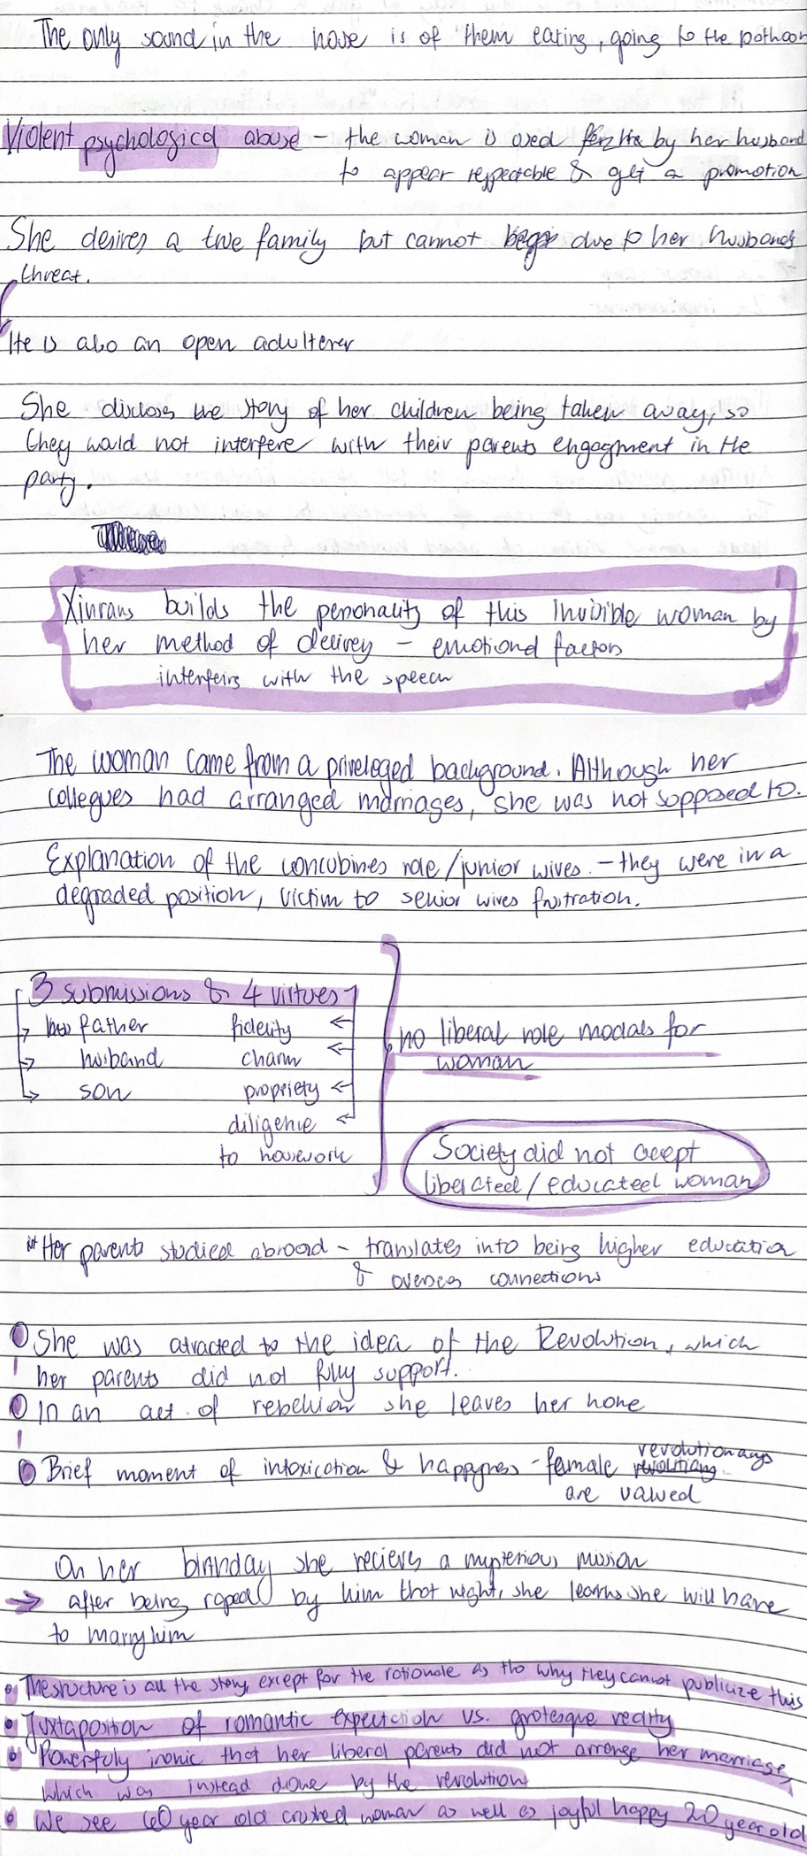 The only sound in the house is of them eating, going to the bathoom
Violent psychological abuse - the woman is used by her husband
to appear respectable & get a promotion
She desires a true family but cannot begin due to her husbands
threat.
He is also an open adulterer
She discloses the story of her children being taken away, so
they would not interfere with their parents engagment in the
party.
Xinrans builds the personality of this Invisible woman by
her method of delivey - emotional factors
interfeirs with the speech
The woman came from a priveleged background. Although her
collegues had arranged marriages, she was not supposed to.
Explanation of the concubines role/junior wives. - they were in a
degraded position, victim to senior wives frustration.
3 submissions & 4 virtues
father fidelity
husband charm
son propriety
diligence
to housework
no liberal role modals for
woman
Society did not accept
liberated / educateed woman
Her parents studied abroad - translates into being higher education
& overseas connections
She was atracted to the idea of the Revolution, which
her parents did not fully support.
In an act of rebellion she leaves her home
revolutionarys
Brief moment of intoxication & happyness - female
are valued
On her birthday she recieves a mysterious mission
→ after being raped by him that night, she learns she will have
to marry him
The structure is all the story, except for the rationale as tho why they cannot publicize this
Juxtaposition of romantic expectation vs. grotesque reality
Powerfuly ironic that her liberal parents did not arrange her marriage,
which was instead done by the revolution
We see 60 year old crushed woman as well as joyful happy 20 year old